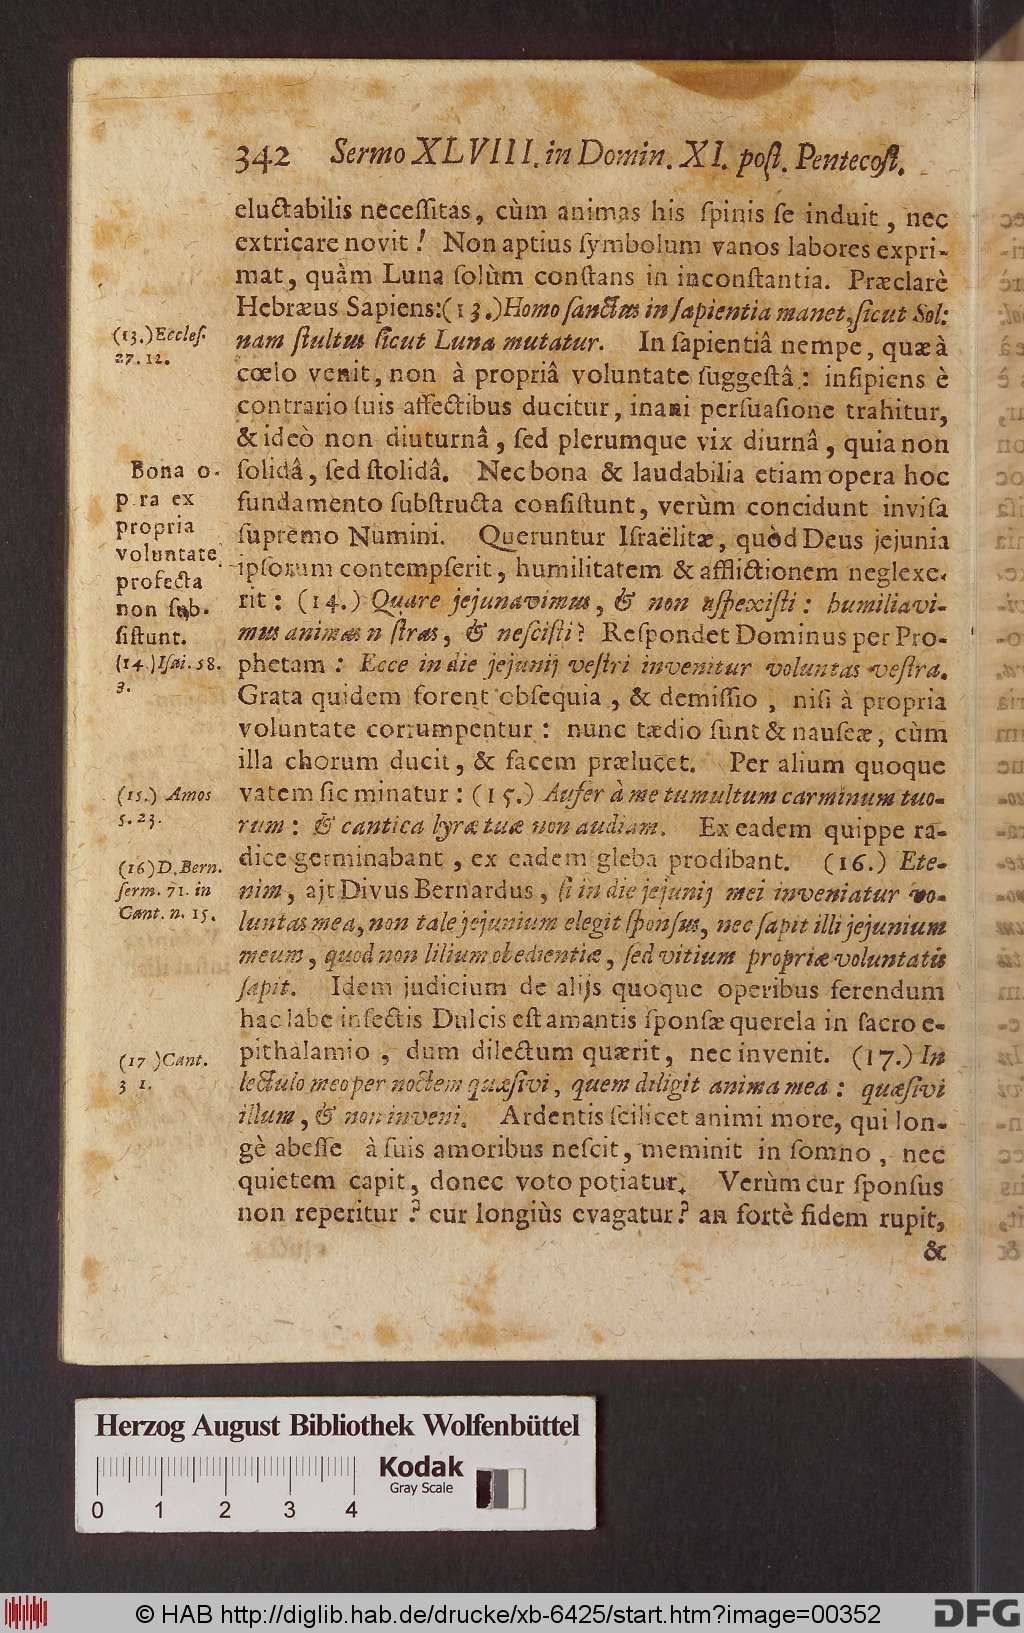 342 Sermo XLVIII. in Domin. XI. poſt. Pentecoſt.
eluctabilis neceſſitas, cùm animas his ſpinis ſe induit, nec
extricare novit! Non aptius ſymbolum vanos labores expri-
mat, quàm Luna ſolùm conſtans in inconſtantia. Præclarè
Hebræus Sapiens:(13.) Homo ſanctus in ſapientia manet, ſicut Sol:
nam ſtultus ſicut Luna mutatur. In ſapientiâ nempe, quæ à
cœlo venit, non à propriâ voluntate ſuggeſtâ: inſipiens è
contrario ſuis affectibus ducitur, inani perſuaſione trahitur,
& ideò non diuturnâ, ſed plerumque vix diurnâ, quia non
ſolidâ, ſed ſtolidâ. Nec bona & laudabilia etiam opera hoc
fundamento ſubſtructa conſiſtunt, verùm concidunt inviſa
ſupremo Numini. Queruntur Iſraëlitæ, quòd Deus jejunia
ipſorum contempſerit, humilitatem & afflictionem neglexe-
rit: (14.) Quare jejunavimus, & non aſpexiſti: humiliavi-
mus animas n ſtras, & neſciſti? Reſpondet Dominus per Pro-
phetam: Ecce in die jejunij veſtri invenitur voluntas veſtra.
Grata quidem forent obſequia, & demiſſio, niſi à propria
voluntate corrumpentur: nunc tædio ſunt & nauſeæ, cùm
illa chorum ducit, & facem prælucet. Per alium quoque
vatem ſic minatur: (15.) Aufer à me tumultum carminum tuo-
rum: & cantica lyræ tuæ non audiam. Ex eadem quippe ra-
dice germinabant, ex eadem gleba prodibant. (16.) Ete-
nim, ajt Divus Bernardus, ſi in die jejunij mei inveniatur vo-
luntas mea, non tale jejunium elegit ſponſus, nec ſapit illi jejunium
meum, quod non lilium obedientiæ, ſed vitium propriæ voluntatis
ſapit. Idem judicium de alijs quoque operibus ferendum
hac labe infectis Dulcis eſt amantis ſponſæ querela in ſacro e-
pithalamio, dum dilectum quærit, nec invenit. (17.) In
lectulo meo per noctem quæſivi, quem diligit anima mea: quæſivi
illum, & non inveni. Ardentis ſcilicet animi more, qui lon-
gè abeſſe à ſuis amoribus neſcit, meminit in ſomno, nec
quietem capit, donec voto potiatur. Verùm cur ſponſus
non reperitur? cur longiùs evagatur? an fortè fidem rupit,
&
(13.) Eccleſ.
27. 12.
Bona o-
p ra ex
propria
voluntate
profecta
non ſub-
ſiſtunt.
(14.) Iſai. 58.
3.
(15.) Amos
5. 23.
(16) D. Bern.
ſerm. 71. in
Cant. n. 15.
(17) Cant.
3 1.
Herzog August Bibliothek Wolfenbüttel
Kodak
Gray Scale
0 1 2 3 4
© HAB http://diglib.hab.de/drucke/xb-6425/start.htm?image=00352
DFG